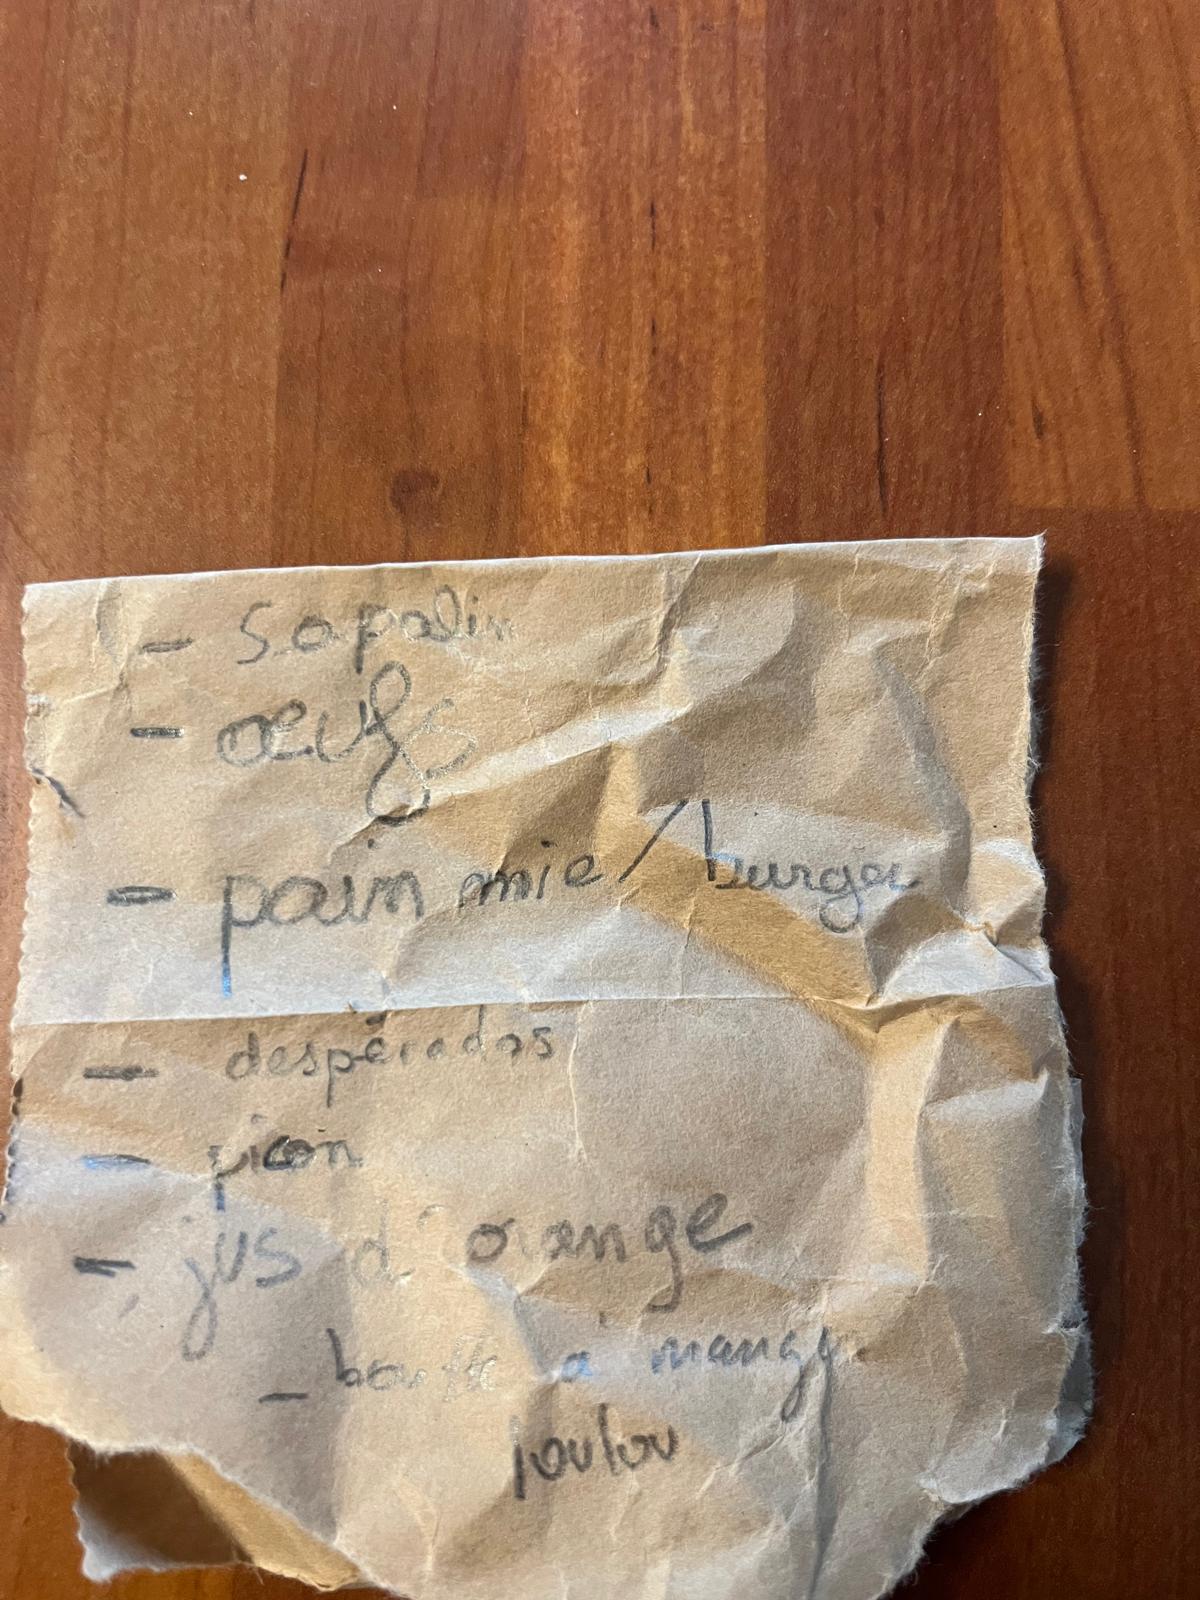 - Sopalin
- œufs
- pain mie / burger
- despérados
- picon
- jus d'orange
- bouffe à manger
loulou